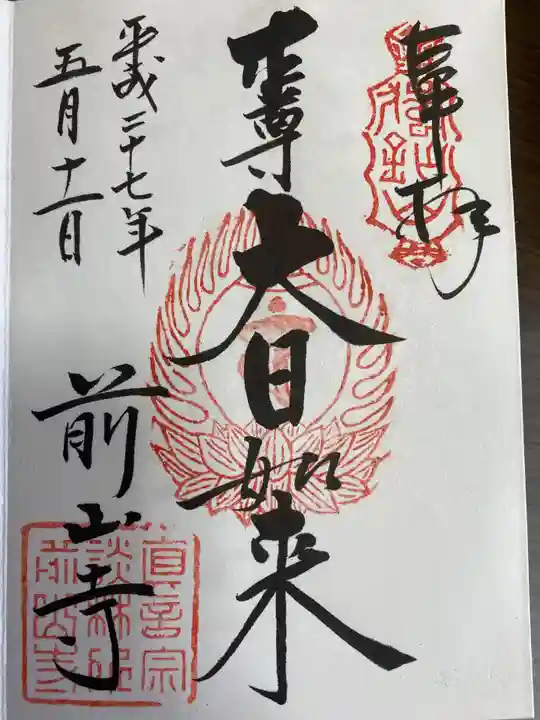 奉拝
本尊
大日如来
平成二十七年
五月十一日
前山寺
真言宗
談林所
前山寺